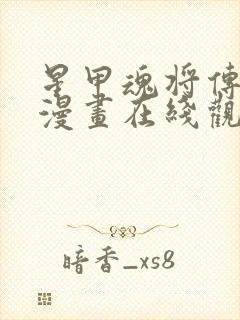 星甲魂将傳
漫畫在綫觀
暗香_xs8